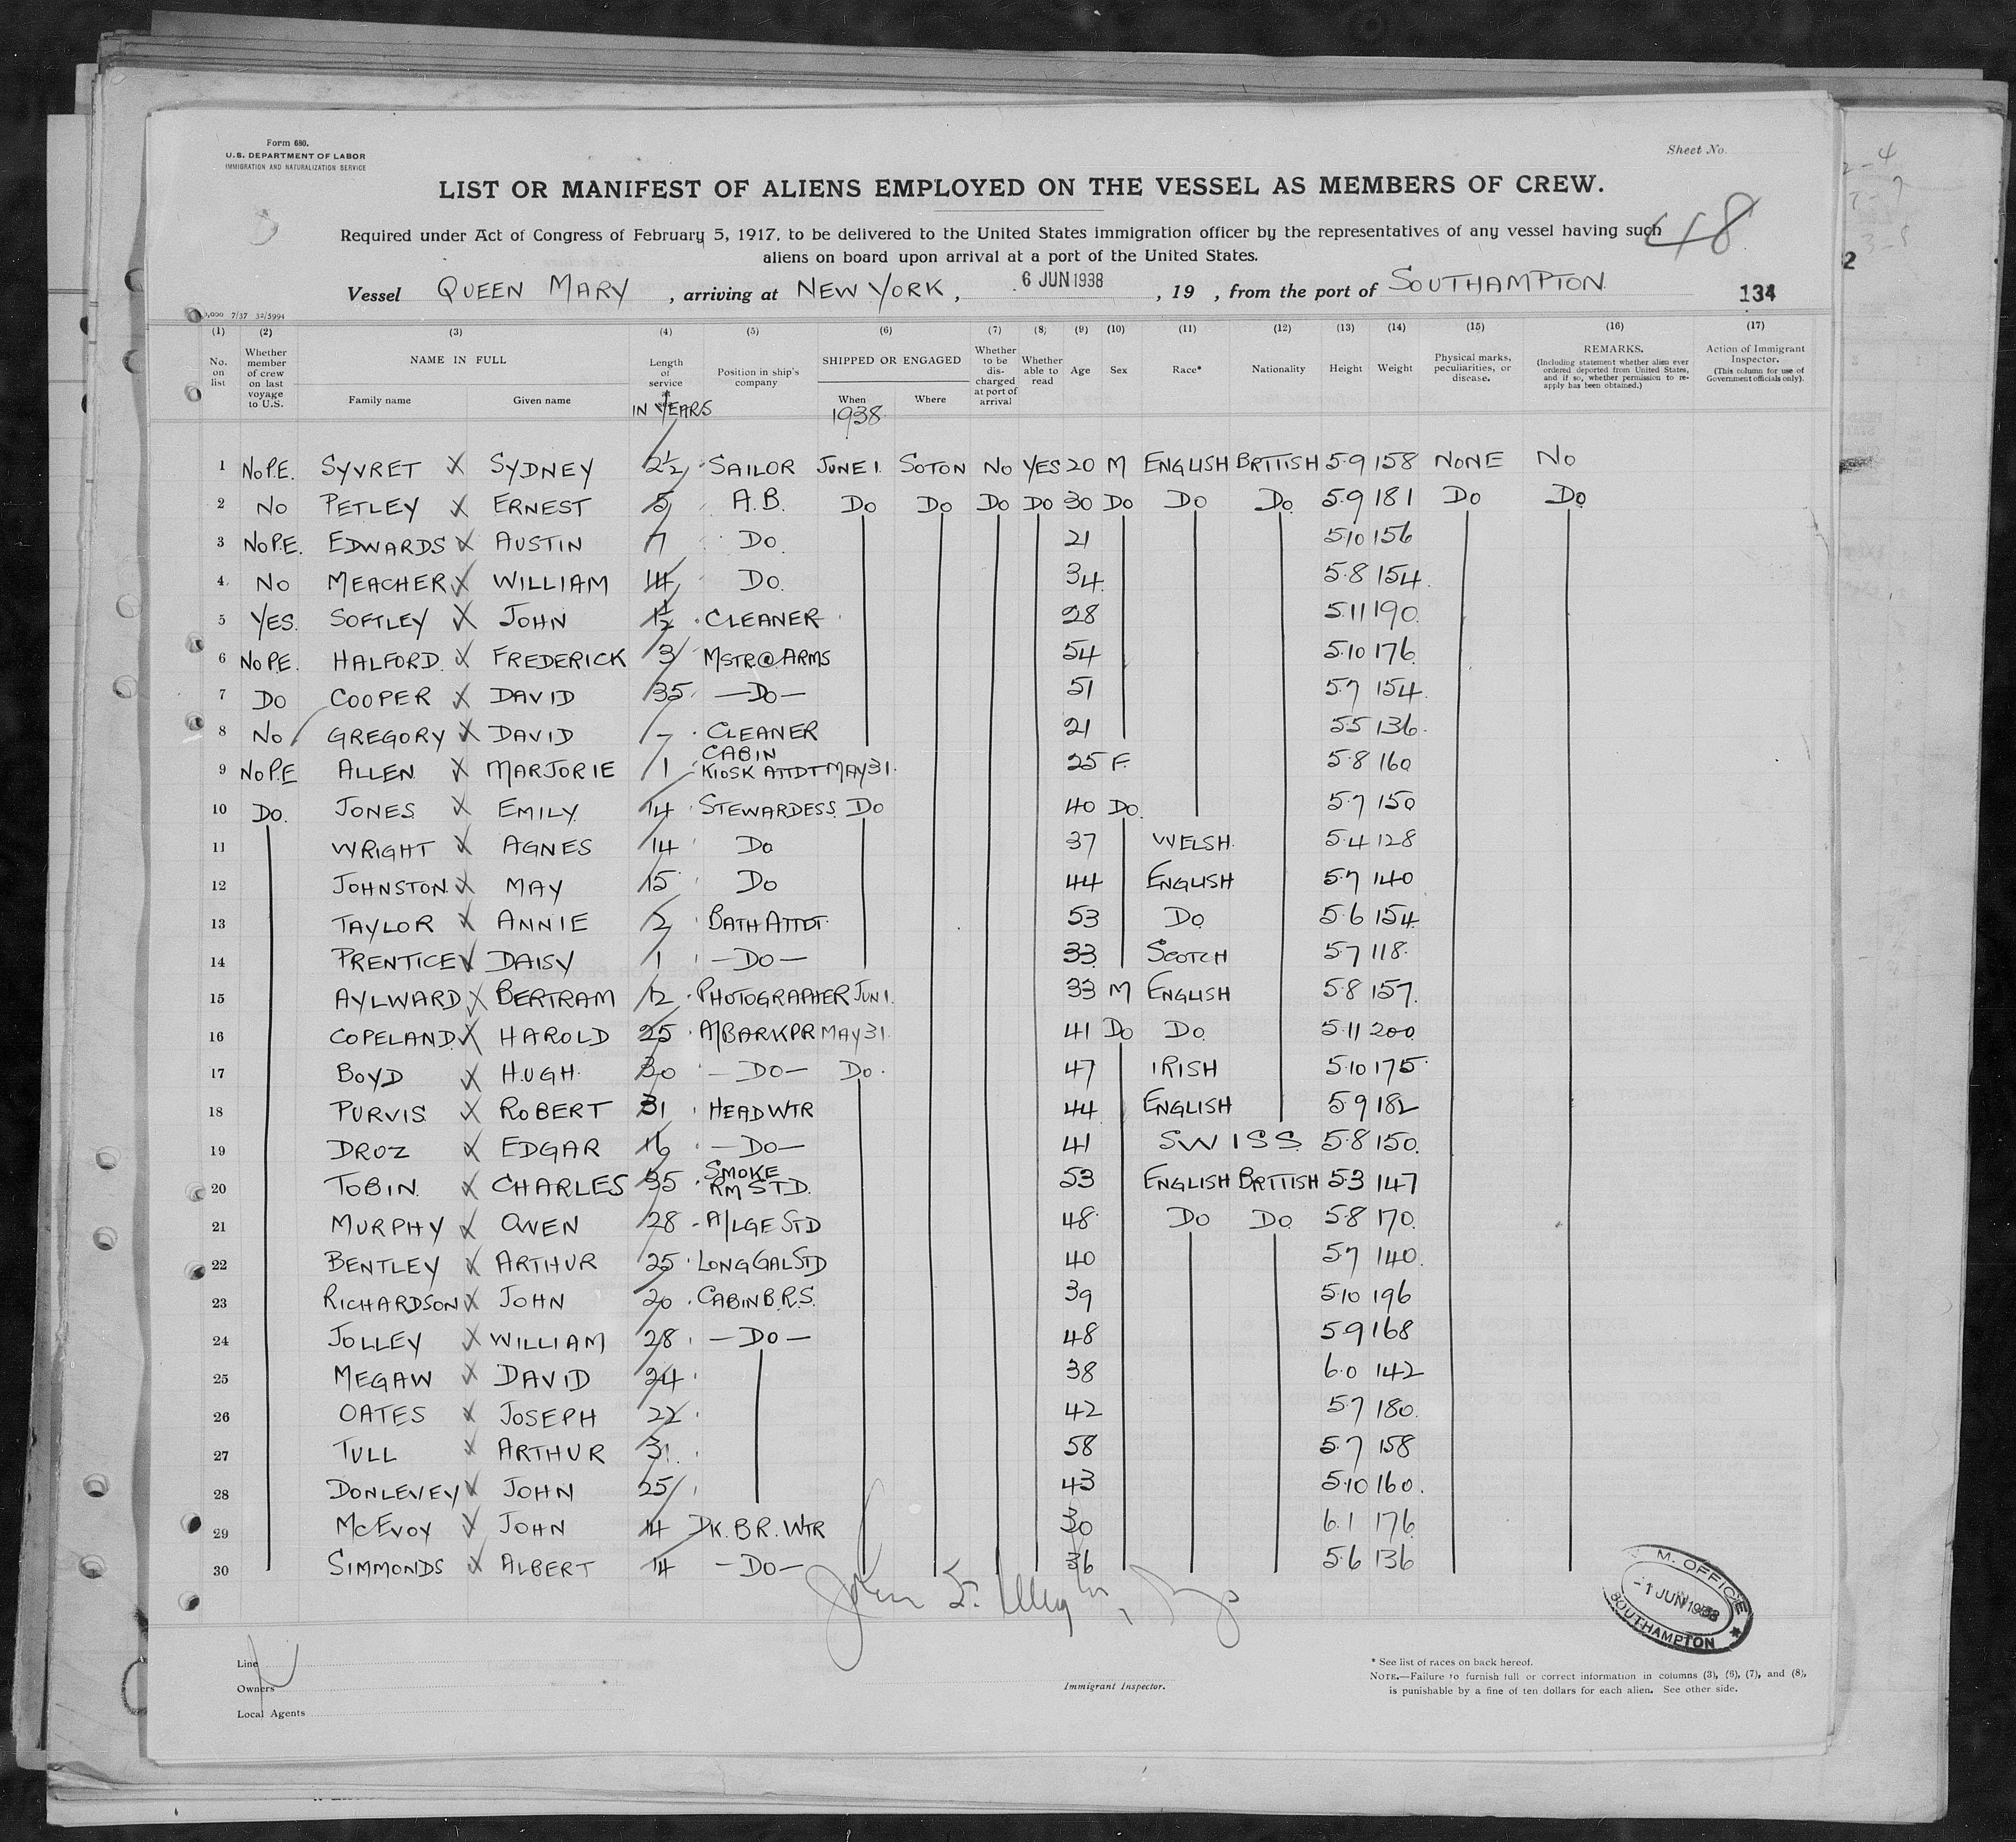 Form 680.
U.S. DEPARTMENT OF LABOR
IMMIGRATION AND NATURALIZATION SERVICE
Sheet No.
LIST OR MANIFEST OF ALIENS EMPLOYED ON THE VESSEL AS MEMBERS OF CREW.
48
Required under Act of Congress of February 5, 1917, to be delivered to the United States immigration officer by the representatives of any vessel having such
aliens on board upon arrival at a port of the United States.
Vessel QUEEN MARY, arriving at NEW YORK, 6 JUN 1938, 19 , from the port of SOUTHAMPTON. 134
,000 7/37 32/5994
(1) (2) (3) (4) (5) (6) (7) (8) (9) (10) (11) (12) (13) (14) (15) (16) (17)
No. on list
Whether member of crew on last voyage to U.S.
NAME IN FULL
Family name Given name
Length of service at sea
IN YEARS
Position in ship's company
SHIPPED OR ENGAGED
When Where
1938.
Whether to be discharged at port of arrival
Whether able to read
Age Sex Race* Nationality Height Weight
Physical marks, peculiarities, or disease.
REMARKS.
(Including statement whether alien ever ordered deported from United States, and if so, whether permission to reapply has been obtained.)
Action of Immigrant Inspector.
(This column for use of Government officials only).
1 No P.E. SYVRET X SYDNEY 2½ SAILOR JUNE 1. SOTON NO YES 20 M ENGLISH BRITISH 5·9 158 NONE NO
2 NO PETLEY X ERNEST 5 A.B. DO DO DO DO 30 DO DO DO. 5·9 181 DO DO
3 No P.E. EDWARDS X AUSTIN 7 DO. 21 5·10 156
4 NO MEACHER X WILLIAM 14 DO. 34. 5·8 154.
5 YES. SOFTLEY X JOHN 1½ CLEANER 28 5·11 190.
6 No P.E. HALFORD. X FREDERICK 3 MSTR@ARMS 54 5·10 176.
7 DO COOPER X DAVID 35 —DO— 51 5·7 154.
8 NO GREGORY X DAVID - CLEANER 21 5·5 136.
9 No P.E ALLEN. X MARJORIE 1 CABIN KIOSK ATTDT MAY 31. 25 F. 5·8 160
10 DO. JONES X EMILY. 14 STEWARDESS. DO 40 DO. 5·7 150
11 WRIGHT X AGNES 14 DO 37 WELSH. 5·4 128
12 JOHNSTON X MAY 15 DO 44 ENGLISH 5·7 140
13 TAYLOR X ANNIE 2 BATH ATTDT. 53 DO. 5·6 154.
14 PRENTICE X DAISY 1 —DO— 33. SCOTCH 5·7 118.
15 AYLWARD X BERTRAM 12 PHOTOGRAPHER JUN 1. 33 M ENGLISH 5·8 157.
16 COPELAND. X HAROLD 25 A/BARKPR MAY 31. 41 DO DO. 5·11 200
17 BOYD X HUGH. 30 —DO— DO. 47 IRISH 5·10 175.
18 PURVIS X ROBERT 31 HEADWTR 44 ENGLISH 5·9 182
19 DROZ X EDGAR 16 —DO— 41 SWISS. 5·8 150.
20 TOBIN. X CHARLES 35 SMOKE RM STD. 53 ENGLISH BRITISH 5·3 147
21 MURPHY X OWEN 28 A/LGE STD 48. DO DO. 5·8 170.
22 BENTLEY X ARTHUR 25 LONG GAL STD 40 5·7 140.
23 RICHARDSON X JOHN 20 CABIN B.R.S. 39 5·10 196
24 JOLLEY X WILLIAM 28 —DO— 48 5·9 168
25 MEGAW X DAVID 24 38 6·0 142
26 OATES X JOSEPH 22 42 5·7 180.
27 TULL X ARTHUR 31. 58 5·7 158
28 DONLEVEY X JOHN 25 43 5·10 160.
29 McEVOY X JOHN 14 DK. B R. WTR 30 6·1 176
30 SIMMONDS X ALBERT 14 —DO— 36 5·6 136
M. OFFICE
-1 JUN 1938
SOUTHAMPTON
Line
Owners
Local Agents
Immigrant Inspector.
* See list of races on back hereof.
NOTE.—Failure to furnish full or correct information in columns (3), (6), (7), and (8),
is punishable by a fine of ten dollars for each alien. See other side.